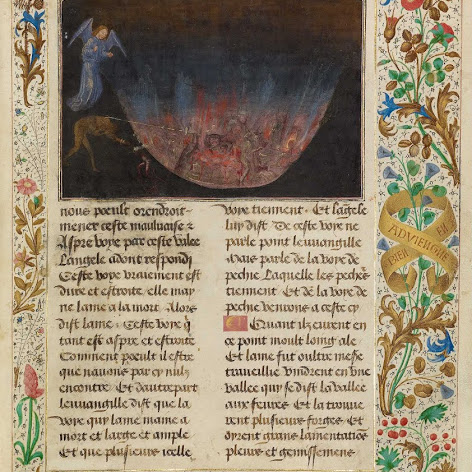 nous poeult orendroit
mener ceste mauluaise z
Aspre voye par ceste valee
Langele adont respondy
Ceste voye vraiement est
dure et estroite elle may
ne lame a la mort Alors
dist lame . Ceste voye q
tant est aspre et estroite
Comment poeult il estre
que nauons par cy nulz
encontre Et dautre part
leuuangille dist que la
voye qui lame maine a
mort et large et ample
Et que pluiseurs icelle
voye tiennent . Et langele
luy dist De ceste voye ne
parle point leuuangille
Mais parle de la voye de
pechie Laquelle les pechies
tiennent Et de la voye de
pechie venrons a ceste cy
Quant ilz eurent en
ce point moult loing ale
Et lame fut oultre mesure
trauellie vindrent en vne
vallee qui se dist la vallee
aux feures Et la trouue
rent pluiseurs forges Et
oyrent grans lamentacions
pleurs et gemissemens
BIEN
EN
ADVIENGNE